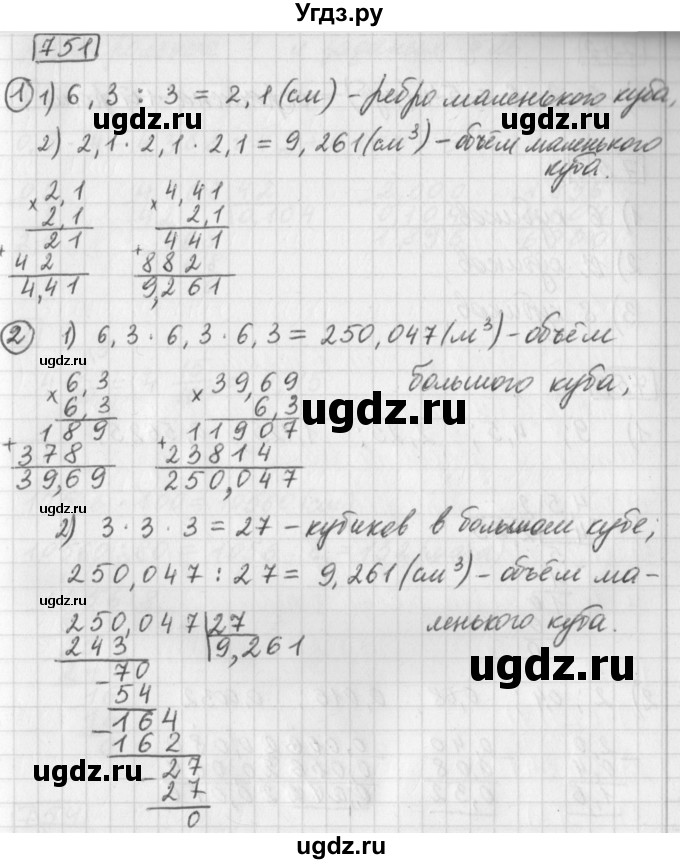 Угдз.ру
751
① 1) 6,3 : 3 = 2,1 (см) – ребро маленького куба,
ugdz.ru
2) 2,1 · 2,1 · 2,1 = 9,261 (см³) – объём маленького
куба.
ugdz.ru
× 2,1 × 4,41
2,1 2,1
21 441
+ 42 + 882
4,41 9,261
ugdz.ru
② 1) 6,3 · 6,3 · 6,3 = 250,047 (м³) – объём
большого куба;
ugdz.ru
× 6,3 × 39,69
6,3 6,3
189 11907
+ 378 + 23814
39,69 250,047
ugdz.ru
ugdz.ru
2) 3 · 3 · 3 = 27 – кубиков в большом кубе;
250,047 : 27 = 9,261 (см³) – объём ма-
ugdz.ru
ленького куба.
ugdz.ru
250,047 27
243 9,261
– 70
54
– 164
162
– 27
27
0
ugdz.ru
ugdz.ru
Угдз.ру